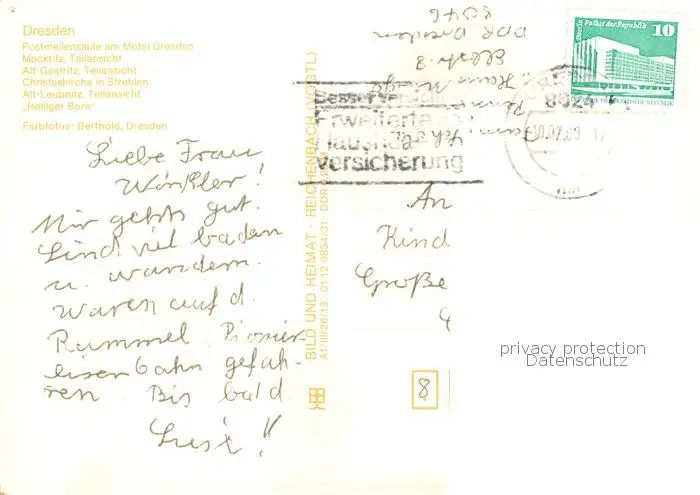 Dresden
Postmeilensäule am Motel Dresden
Mockritz, Teilansicht
Alt-Gostritz, Teilansicht
Christuskirche in Strehlen
Alt-Leubnitz, Teilansicht
„Heiliger Born"
Farbfotos: Berthold, Dresden
Liebe Frau
Winkler!
Mir gehts gut.
Sind viel baden
u. wandern.
Waren auf d.
Rummel. Pionier
eisenbahn gefah-
ren. Bis bald
BILD UND HEIMAT · REICHENBACH (VOGTL)
A1/III/26/13 01 12 0834/31 DDR
DDR Dresden
8046
Besser
Erweiterte
Haushalt
versicherung
Berlin, Palast der Republik
10
8024
An
Kind
Große
4
8
privacy protection
Datenschutz